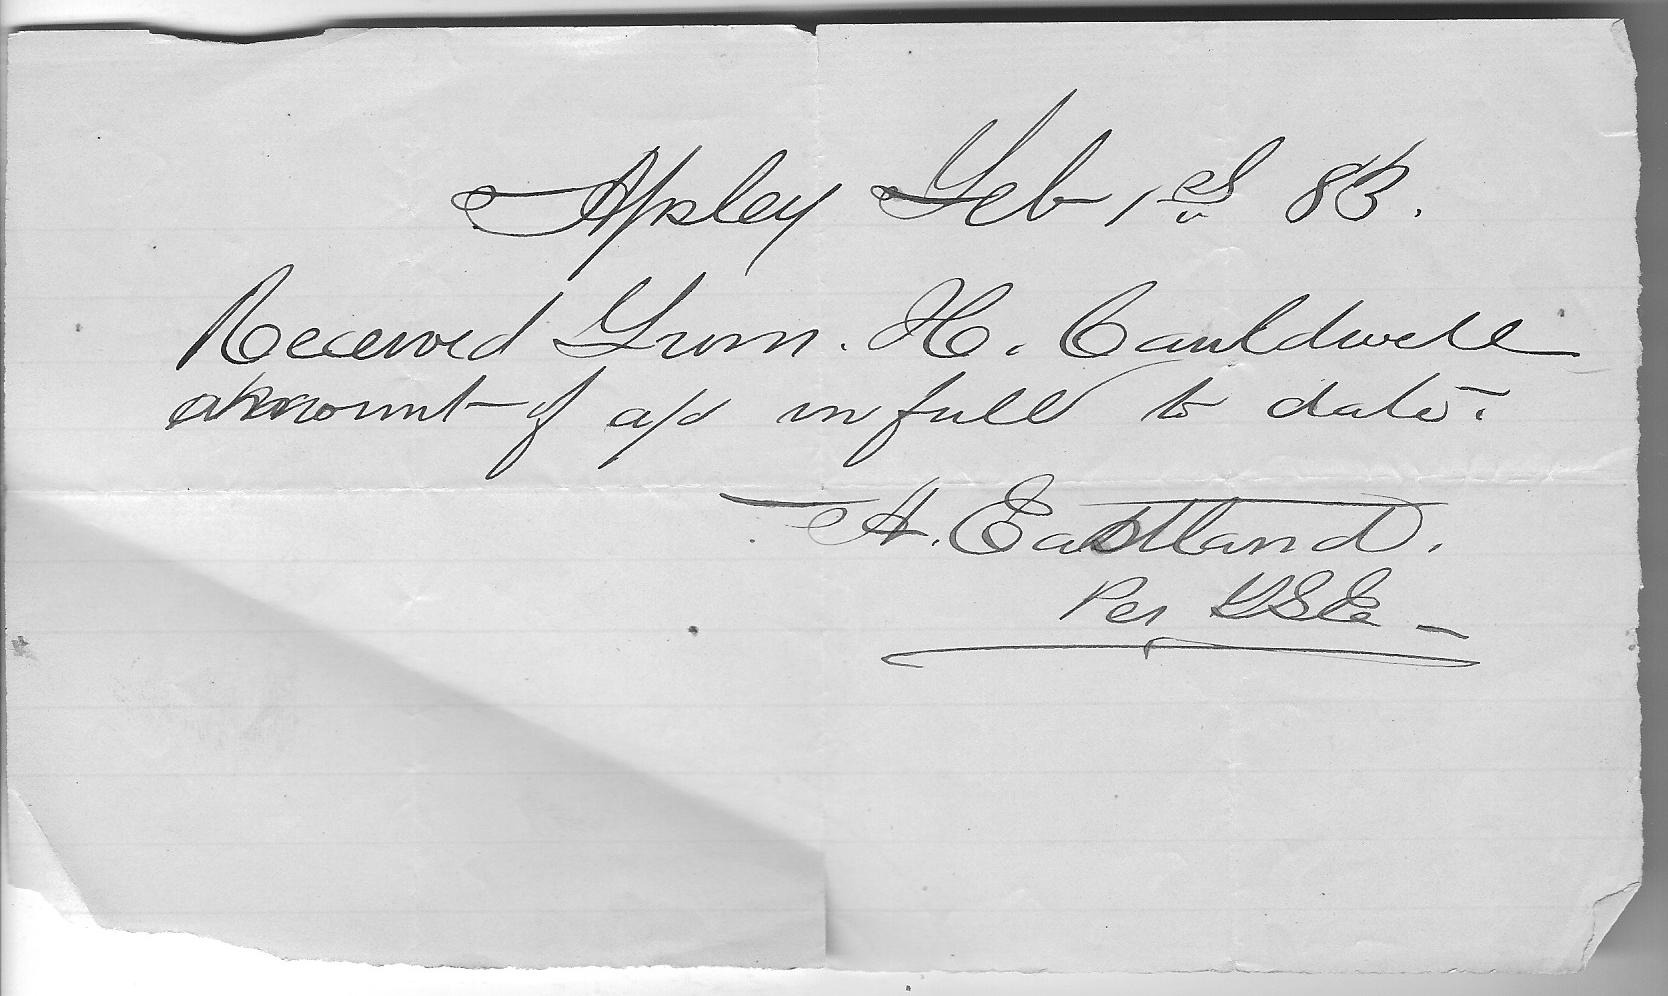 Apsley Feb 1st 83.
Received From. H. Cauldwell
amount of a/c in full to date.
H. Eastland.
Per